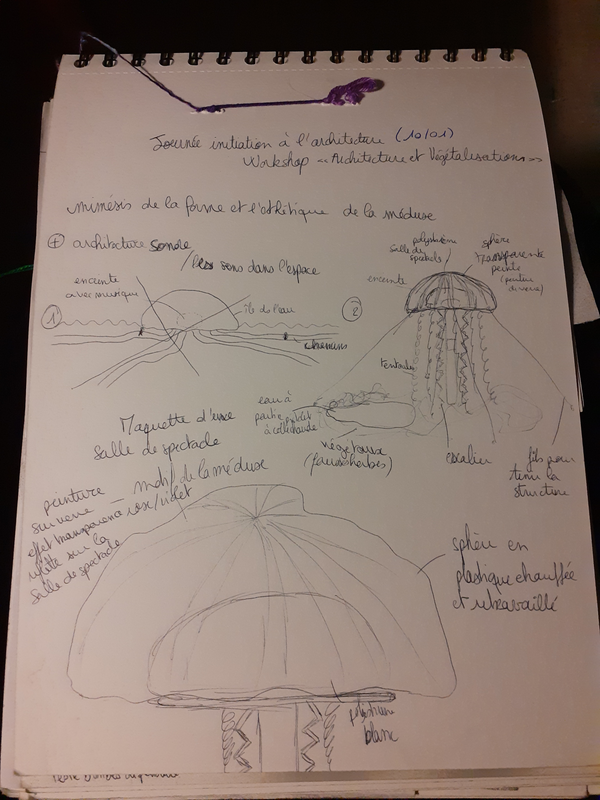 Journée initiation à l'architecture (10/01)
Workshop « Architecture et Végétalisations »
mimésis de la forme et l'esthétique de la méduse
+ architecture sonore
/ les sons dans l'espace
enceinte
avec musique
île de l'eau
1
chemins
2
enceinte
polystyrène
salle de
spectacle
sphère
transparente
peinte
(peinture
de verre)
tentacules
eau à
partir
à colle chaude
végétaux
(fausses herbes)
escalier
fils pour
tenir la
structure
Maquette d'une
salle de spectacle
peinture
sur verre — motif de la méduse
effet transparence rose/violet
reflète sur la
salle de spectacle
sphère en
plastique chauffée
et retravaillé
polystyrène
blanc